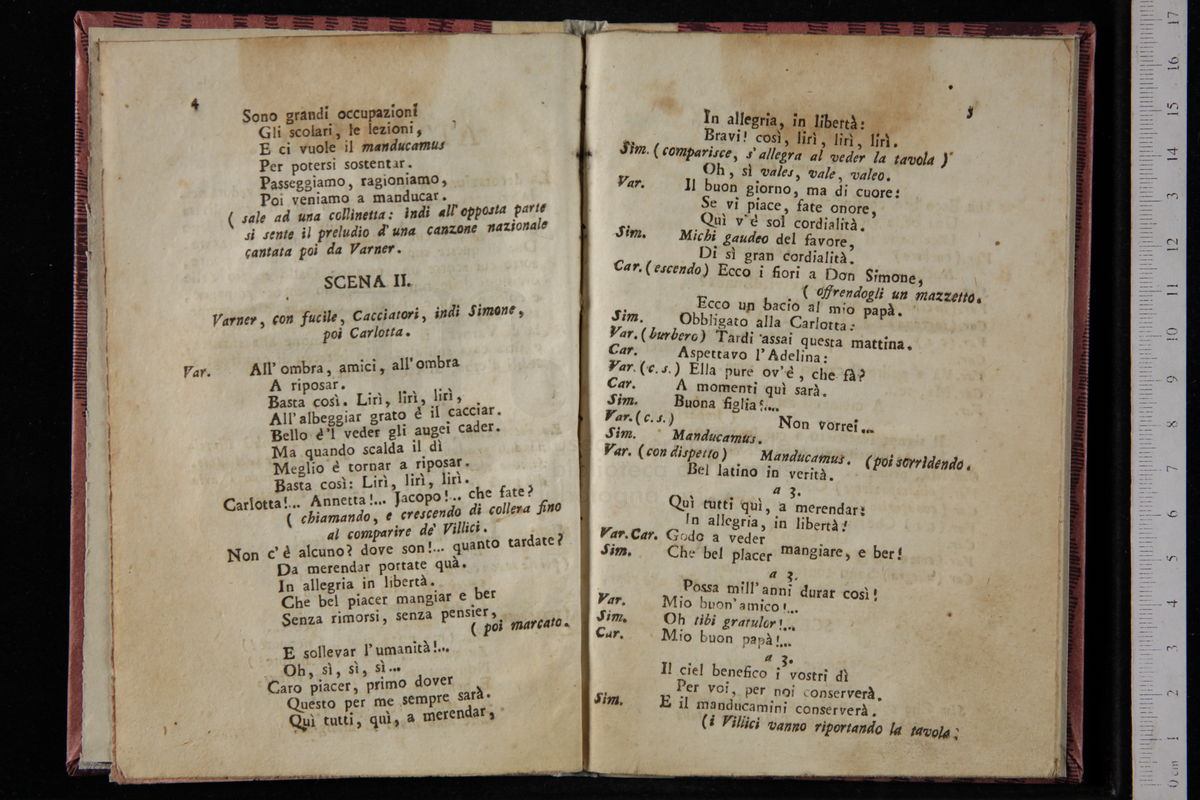 4
Sono grandi occupazioni
Gli scolari, le lezioni,
E ci vuole il manducamus
Per potersi sostentar.
Passeggiamo, ragioniamo,
Poi veniamo a manducar.
( sale ad una collinetta: indi all'opposta parte
si sente il preludio d'una canzone nazionale
cantata poi da Varner.
SCENA II.
Varner, con fucile, Cacciatori, indi Simone,
poi Carlotta.
Var. All'ombra, amici, all'ombra
A riposar.
Basta così. Lirì, lirì, lirì,
All'albeggiar grato è il cacciar.
Bello è'l veder gli augei cader.
Ma quando scalda il dì
Meglio è tornar a riposar.
Basta così: Lirì, lirì, lirì.
Carlotta!... Annetta!... Jacopo!... che fate?
( chiamando, e crescendo di collera fino
al comparire de' Villici.
Non c'è alcuno? dove son!... quanto tardate?
Da merendar portate quà.
In allegria in libertà.
Che bel piacer mangiar e ber
Senza rimorsi, senza pensier,
( poi marcato.
E sollevar l'umanità!...
Oh, sì, sì, sì...
Caro piacer, primo dover
Questo per me sempre sarà.
Quì tutti, quì, a merendar,
5
In allegria, in libertà:
Bravi! così, lirì, lirì, lirì.
Sim. (comparisce, s'allegra al veder la tavola )
Oh, sì vales, vale, valeo.
Var. Il buon giorno, ma di cuore:
Se vi piace, fate onore,
Quì v'è sol cordialità.
Sim. Michi gaudeo del favore,
Di sì gran cordialità.
Car. (escendo) Ecco i fiori a Don Simone,
( offrendogli un mazzetto.
Ecco un bacio al mio papà.
Sim. Obbligato alla Carlotta:
Var. (burbero) Tardi assai questa mattina.
Car. Aspettavo l'Adelina:
Var. (c. s.) Ella pure ov'è, che fà?
Car. A momenti quì sarà.
Sim. Buona figlia!....
Var. (c. s.) Non vorrei...
Sim. Manducamus.
Var. (con dispetto) Manducamus. (poi sorridendo.
Bel latino in verità.
a 3.
Quì tutti quì, a merendar:
In allegria, in libertà!
Var. Car. Godo a veder
Sim. Che bel placer mangiare, e ber!
a 3.
Possa mill'anni durar così!
Var. Mio buon'amico!...
Sim. Oh tibi gratulor!...
Car. Mio buon papà!...
a 3.
Il ciel benefico i vostri dì
Per voi, per noi conserverà.
Sim. E il manducamini conserverà.
(i Villici vanno riportando la tavola;
0 cm 1 2 3 4 5 6 7 8 9 10 11 12 13 14 15 16 17